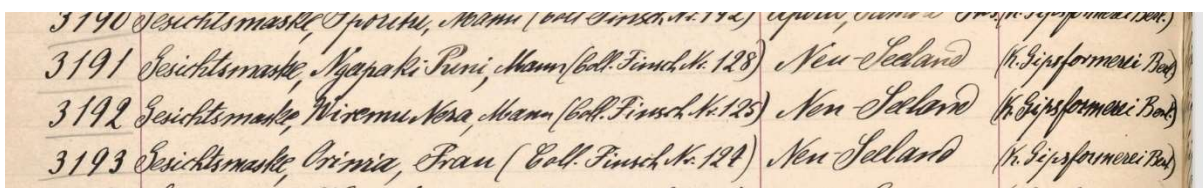 3190 Gesichtsmaske, Mann (Coll. Finsch Nr. 142) Apia, Samoa Ins. (K. Gipsformerei Berl.)
3191 Gesichtsmaske, Ngapaki Puni, Mann (Coll. Finsch Nr. 128) Neu-Seeland (K. Gipsformerei Berl)
3192 Gesichtsmaske, Wiremu Nera, Mann (Coll. Finsch Nr. 125) Neu-Seeland (K. Gipsformerei Berl.)
3193 Gesichtsmaske, Orinia, Frau (Coll. Finsch Nr. 124) Neu-Seeland (K. Gipsformerei Berl)